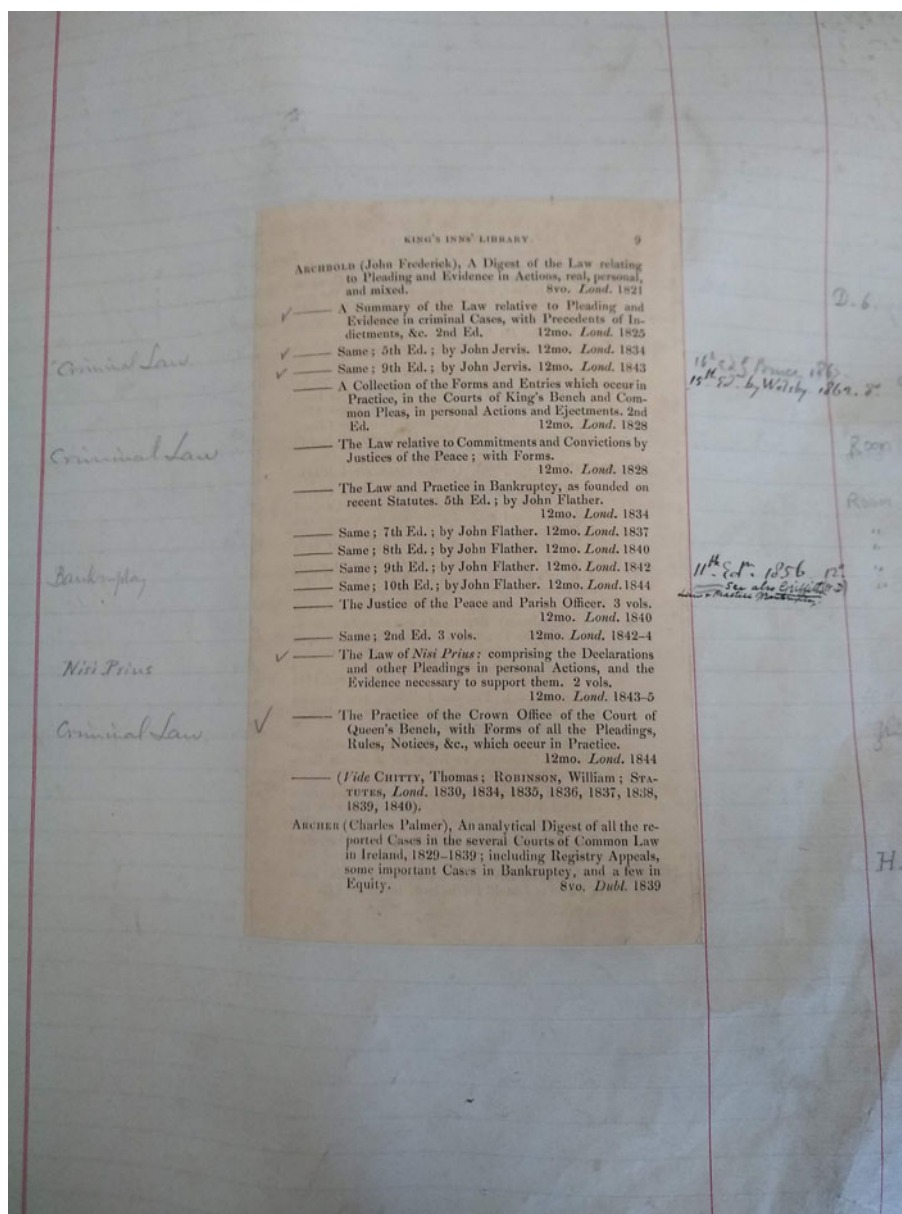 KING'S INNS' LIBRARY 9
ARCHBOLD (John Frederick), A Digest of the Law relating
to Pleading and Evidence in Actions, real, personal,
and mixed. 8vo. Lond. 1821
D. 6.
✓ —— A Summary of the Law relative to Pleading and
Evidence in criminal Cases, with Precedents of In-
dictments, &c. 2nd Ed. 12mo. Lond. 1825
✓ —— Same; 5th Ed.; by John Jervis. 12mo. Lond. 1834
Criminal Law
✓ —— Same; 9th Ed.; by John Jervis. 12mo. Lond. 1843
16th Ed. Bruce 186
15th Ed. by Welsby 1862. 8o.
—— A Collection of the Forms and Entries which occur in
Practice, in the Courts of King's Bench and Com-
mon Pleas, in personal Actions and Ejectments. 2nd
Ed. 12mo. Lond. 1828
Criminal Law
—— The Law relative to Commitments and Convictions by
Justices of the Peace; with Forms.
12mo. Lond. 1828
Room
—— The Law and Practice in Bankruptcy, as founded on
recent Statutes. 5th Ed.; by John Flather.
12mo. Lond. 1834
Room
—— Same; 7th Ed.; by John Flather. 12mo. Lond. 1837
"
—— Same; 8th Ed.; by John Flather. 12mo. Lond. 1840
"
—— Same; 9th Ed.; by John Flather. 12mo. Lond. 1842
"
Bankruptcy
—— Same; 10th Ed.; by John Flather. 12mo. Lond. 1844
"
11th Edn. 1856 12o.
See also Griffith
Law & Practice Bankruptcy.
—— The Justice of the Peace and Parish Officer. 3 vols.
12mo. Lond. 1840
—— Same; 2nd Ed. 3 vols. 12mo. Lond. 1842–4
Nisi Prius
✓ —— The Law of Nisi Prius: comprising the Declarations
and other Pleadings in personal Actions, and the
Evidence necessary to support them. 2 vols.
12mo. Lond. 1843–5
Criminal Law
✓ —— The Practice of the Crown Office of the Court of
Queen's Bench, with Forms of all the Pleadings,
Rules, Notices, &c., which occur in Practice.
12mo. Lond. 1844
—— (Vide CHITTY, Thomas; ROBINSON, William; STA-
TUTES, Lond. 1830, 1834, 1835, 1836, 1837, 1838,
1839, 1840).
ARCHER (Charles Palmer), An analytical Digest of all the re-
ported Cases in the several Courts of Common Law
in Ireland, 1829–1839; including Registry Appeals,
some important Cases in Bankruptcy, and a few in
Equity. 8vo. Dubl. 1839
H.